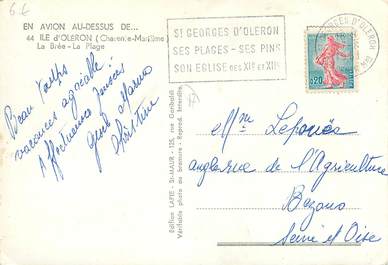 6.€
EN AVION AU-DESSUS DE...
44 ILE d'OLERON (Charente-Maritime)
La Brée - La Plage
ST GEORGES D'OLERON
SES PLAGES - SES PINS
SON EGLISE DES XIE ET XIIE
GEORGES D'OLERON
0,20
Beau temps
vacances agréables
Affectueuses pensées
Christine
Edition LAPIE - St-MAUR - 125, rue Garibaldi
Véritable photo au bromure - Reprod. Interdite
Mme Lefouès
angle rue de l'Agriculture
Bezons
Seine et Oise